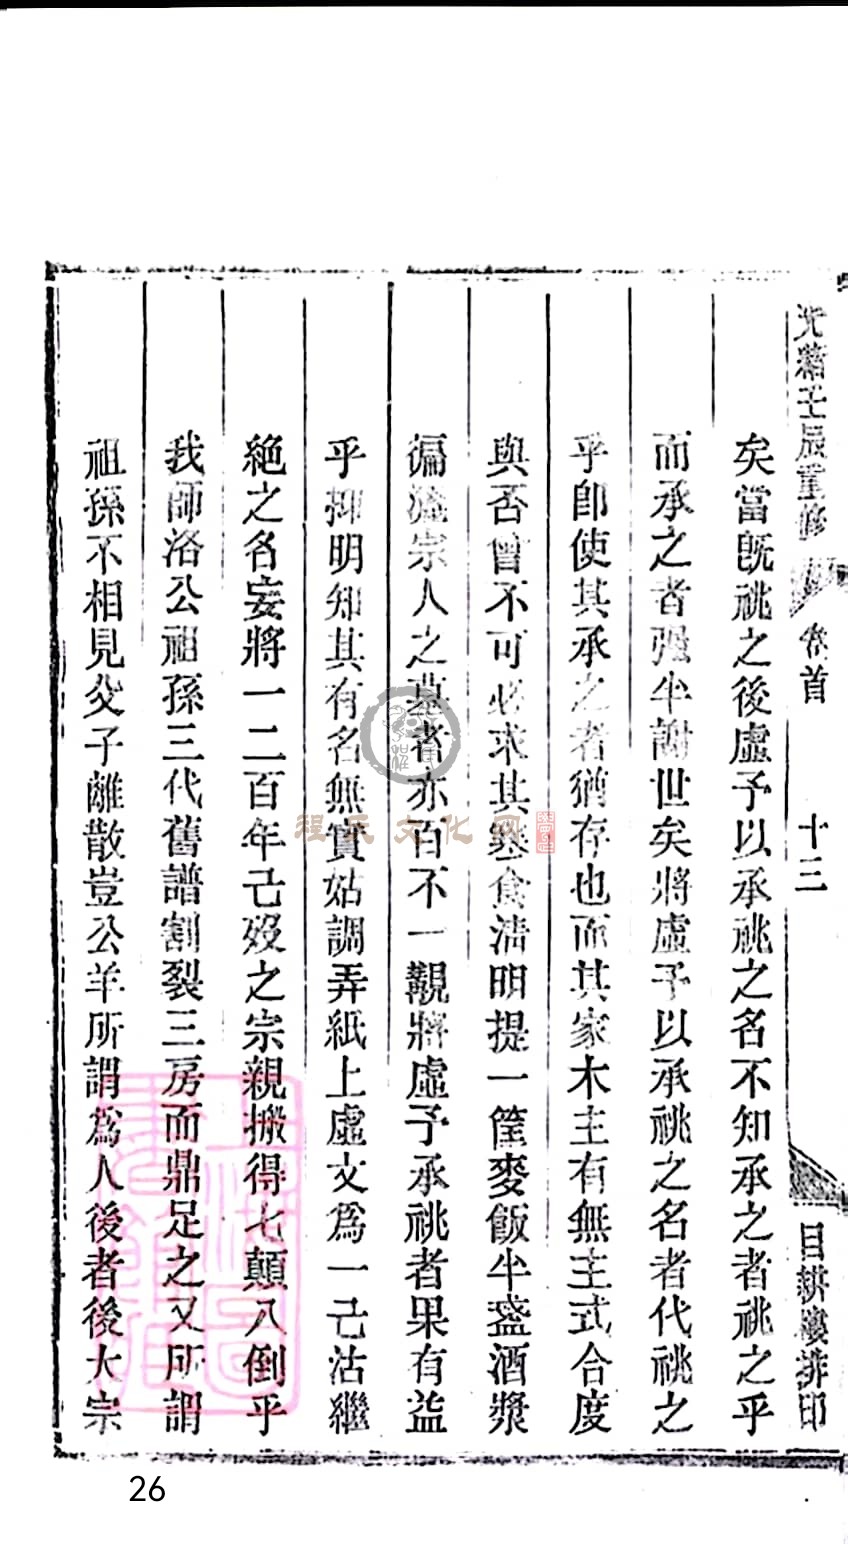 光緒壬辰重修
卷首
十三
目耕樓排印
矣當旣祧之後虛予以承祧之名不知承之者祧之乎
而承之者强半謝世矣將虛予以承祧之名者代祧之
乎卽使其承之者猶存也而其家木主有無主式合度
與否曾不可必求其寒食淸明提一筐麥飯半盞酒漿
徧澆宗人之墓者亦百不一覯將虛予承祧者果有益
乎抑明知其有名無實姑調弄紙上虛文爲一己沽繼
絶之名妄將一二百年已歿之宗親搬得七顛八倒乎
我師洛公祖孫三代舊譜割裂三房而鼎足之又所謂
祖孫不相見父子離散豈公羊所謂爲人後者後大宗
程氏文化网
26